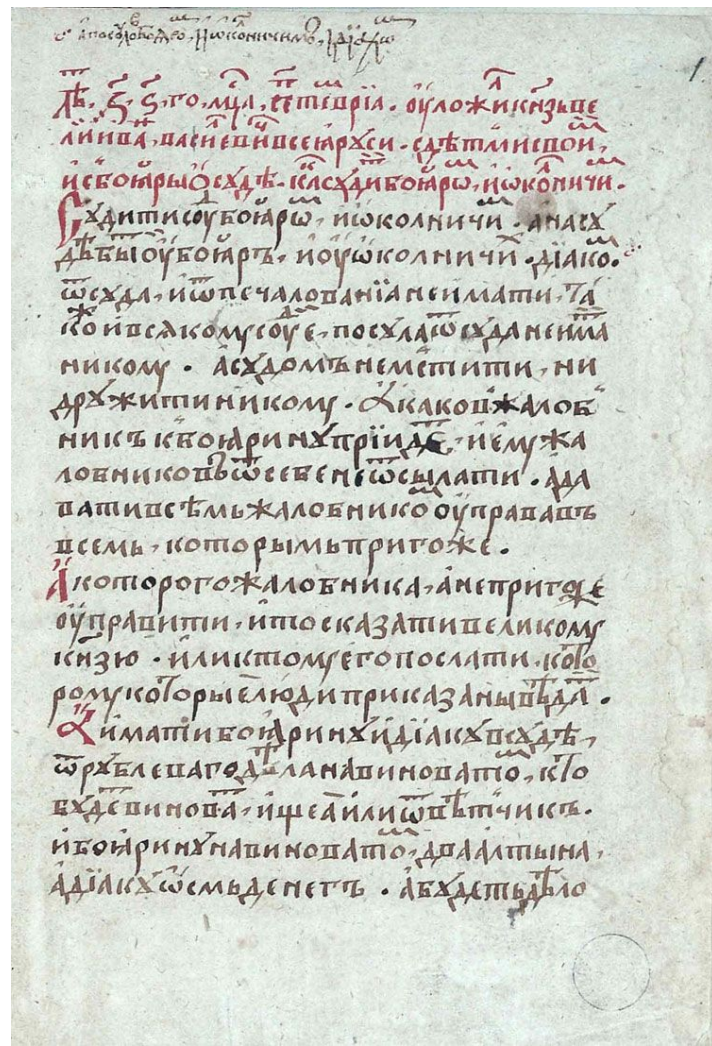 лѣ, ҂з҃. ѕ҃. го, мцⷭ҇а, сеⷫ҇тевріа. оуложиⷧ кнѕь ве
лиⷦ҇іи иваⷩ҇, васиⷧ҇евиⷱ҇ всеѧ рꙋси. с дѣтⸯми своиⷨ,
и с боꙗры ѡ сꙋдѣ. каⷦ҇ сꙋдиⷮ боꙗроⷨ, и ѡкоⷧ҇ничиⷨ.
Сꙋдити соуⷣ боꙗроⷨ, и ѡколничиⷨ. а на сꙋ
дѣ быⷮ оу боꙗръ, и оу ѡколничиⷯ. діакоⷨ.
ѿ сꙋда, и ѿ печалованїа не имати, та
коⷤ и всякомꙋ соуⷣе, посꙋла ѿ сꙋда не имаⷮ
никомꙋ. а сꙋдомъ не мстити, ни
дрꙋжити никомꙋ. а каков жалоб
никъ к боꙗринꙋ прїидеⷮ, и емꙋ жа
лобниковъ ѿ себе не ѿсылати. а да
вати всѣмь жалобникоⷨ оуправа въ
всемь, которымь пригоже.
А которого жалобника, а не пригоже
оуправити, и то сказати великомꙋ
кнѕю. или к томꙋ его послати. кото
ромꙋ которые люди приказаны вѣдаⷮ.
А имати боꙗринꙋ и діакꙋ в сꙋдѣ,
ѿ рꙋблева го дѣла на виноватоⷨ, кто
бꙋдеⷮ виноваⷮ, ищеа или ѿвѣтчикъ.
и боꙗринꙋ на виноватоⷨ, два алтына,
а діакꙋ ѡсмь денегъ. а бꙋдеть дѣло